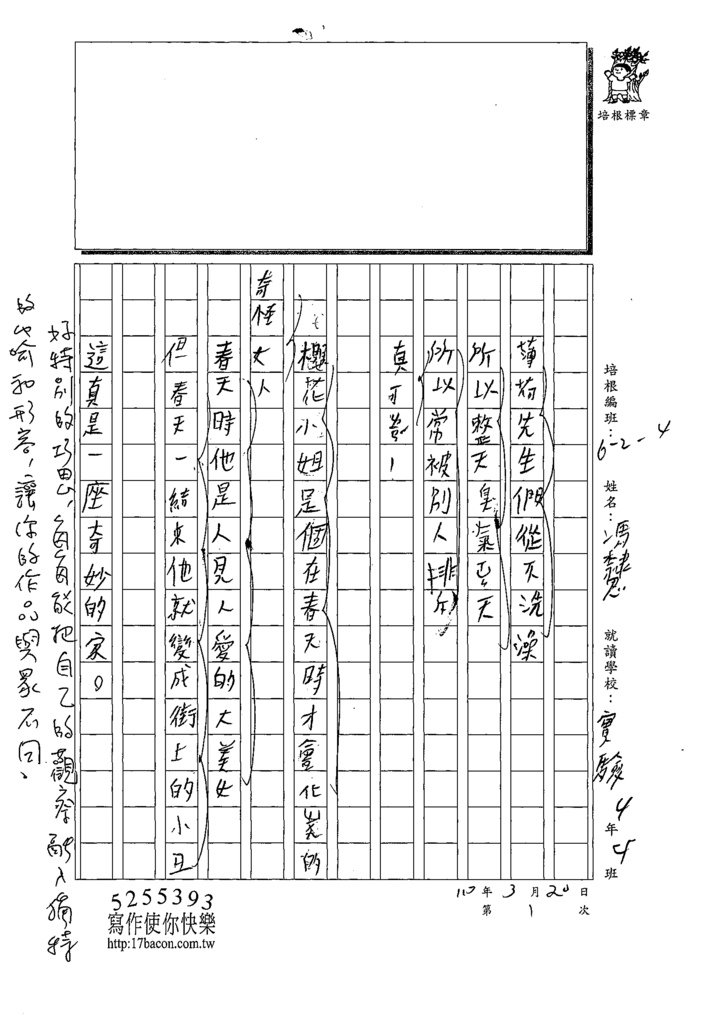 培根標章
培根編班：6-2-4
姓名：馮
就讀學校：實驗4年4班
110年3月20日
第1次
薄荷先生們從不洗澡
所以整天臭氣
天
所以常被別人排斥
真可
！
櫻花小姐是個在春天時才會化
的
奇怪女人
春天時他是人見人愛的大美女
但春天一結束他就變成街上的小丑
這真是一座奇妙的家。
好特別的巧思，每每能把自己的觀察融入獨特
的比喻和形容，讓你的作品與眾不同、
5255393
寫作使你快樂
http:17bacon.com.tw